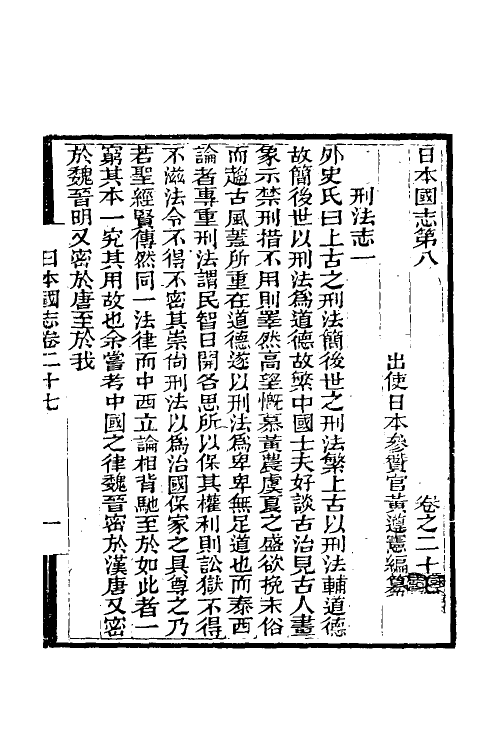 日本國志第八 卷之二十七
出使日本參贊官黃遵憲編纂
刑法志一
外史氏曰上古之刑法簡後世之刑法繁上古以刑法輔道德
故簡後世以刑法爲道德故繁中國士夫好談古治見古人畫
象示禁刑措不用則睪然高望慨慕黃農虞夏之盛欲挽末俗
而趨古風蓋所重在道德遂以刑法爲卑卑無足道也而泰西
論者專重刑法謂民智日開各思所以保其權利則訟獄不得
不滋法令不得不密其崇尚刑法以爲治國保家之具尊之乃
若聖經賢傳然同一法律而中西立論相背馳至於如此者一
窮其本一究其用故也余嘗考中國之律魏晉密於漢唐又密
於魏晉明又密於唐至於我
日本國志卷二十七 一